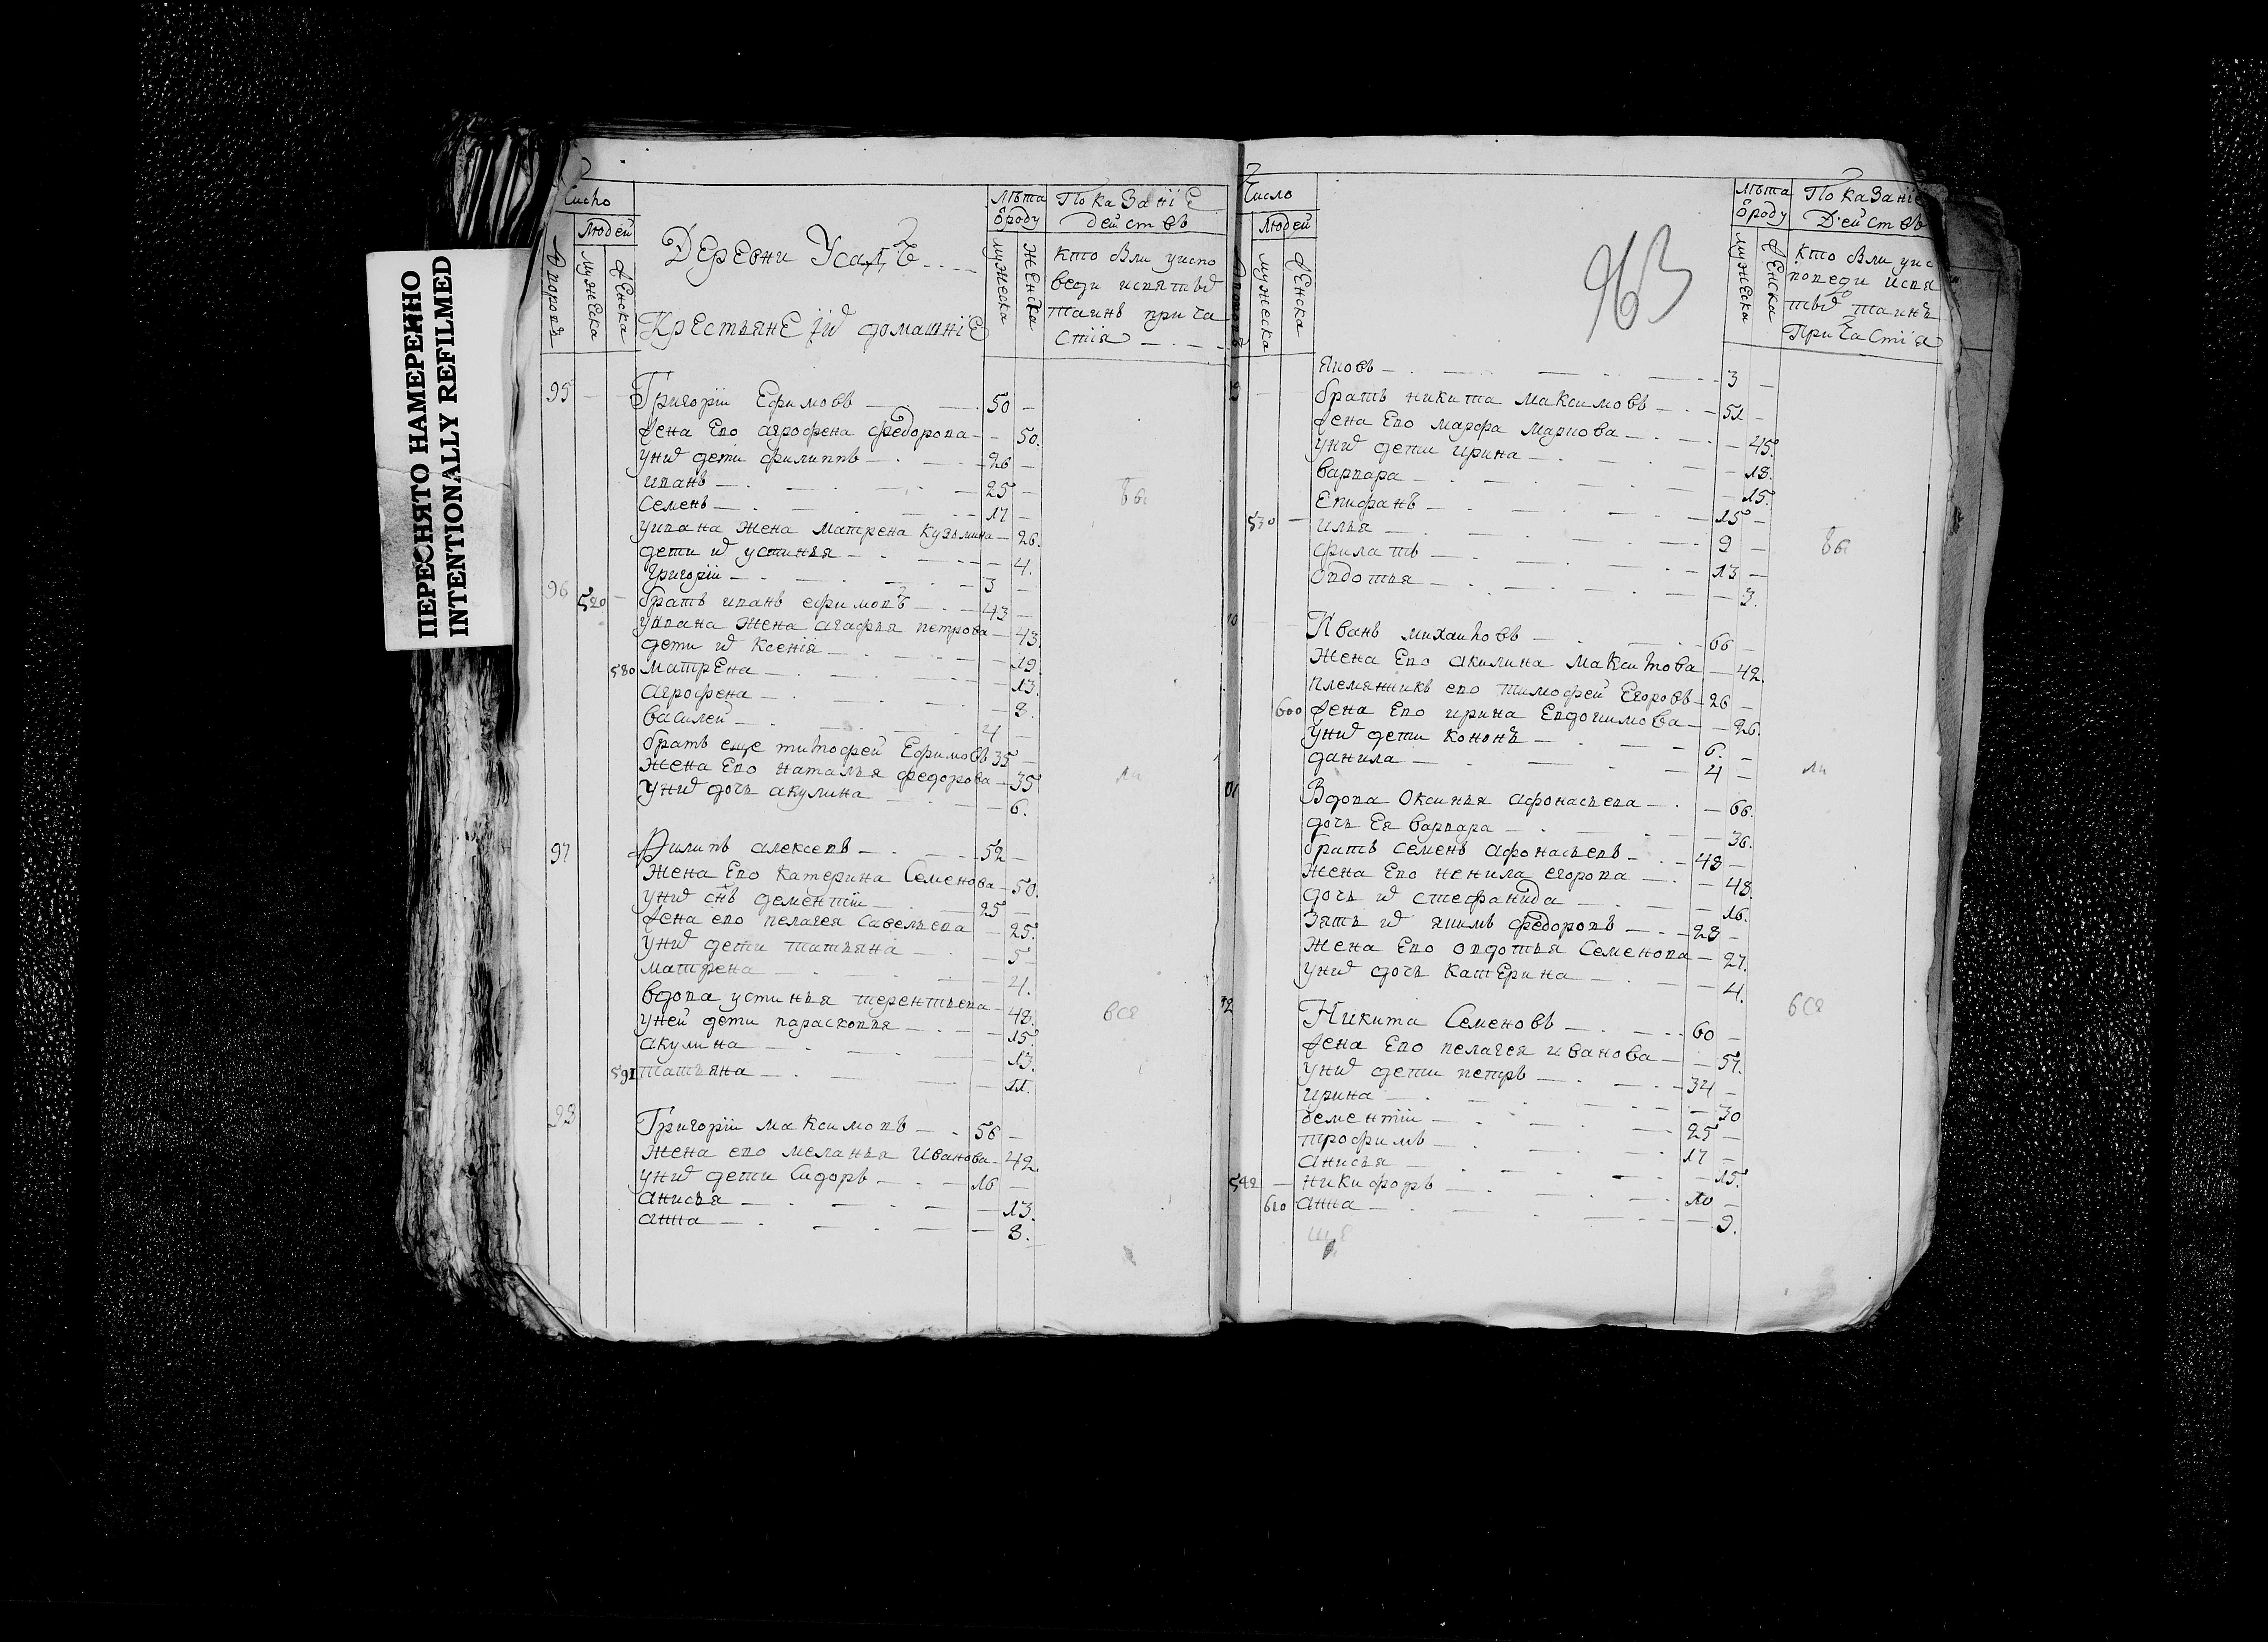 ПЕРЕСНЯТО НАМЕРЕННО
INTENTIONALLY REFILMED
Число
Людей
Дворовъ
мужеска
Женска
Деревни Усадъ
Крестьяне ихъ домашніе
Лѣта ѿроду
мужеска
Женска
Показаніе действъ
кто былъ уиспо
веди исвятыхъ
таинъ прича
стія
95 Григоріи Ефимовъ 50
Жена Ево агрофена федорова 50.
унихъ дети филиппъ 26
иванъ 25
Семенъ 17
уивана жена матрена кузьмина 26.
дети ихъ устинья 4.
григоріи 3
96 520 братъ иванъ ефимовъ 43
уивана жена агафья петрова 43.
дети ихъ Ксенія 19
580 матрена 13.
агрофена 8.
василей 4
братъ еще тимофей Ефимовъ 35
жена Ево наталья федорова 35
унихъ дочь акулина 6.
97 Филипъ алексевъ 52
жена Ево катерина Семенова 50.
унихъ снъ дементіи 25
Жена ево пелагея савельева 25.
унихъ дети татьяна 5
матрена 4.
вдова устинья терентьева 48.
уней дети парасковья 15.
акулина 13.
591 татьяна 11.
98 Григоріи максимовъ 56
жена ево меланья иванова 42.
унихъ дети Сидоръ 16
анисья 13.
анна 8.
бы
ли
вся
Число
Людей
мужеска
Женска
963
Лѣта ѿроду
мужеска
Женска
Показаніе Действъ
кто былъ уис
поведи исвя
тыхъ таинъ
Причастія
яковъ 3
братъ никита максимовъ 51
Жена Ево марфа маркова 45.
унихъ дети ирина 18.
варвара 15.
Епифанъ 15
530 илья 9
филатъ 13
овдотья 3.
Иванъ михаиловъ 66
жена Ево акилина максимова 42.
племянникъ ево тимофей Егоровъ 26
600 Жена Ево ирина Евдокимова 26.
унихъ дети кононъ 6.
данила 4
Вдова Оксинья афонасьева 66.
дочь Ея варвара 36.
братъ семенъ афонасьевъ 48
жена Ево ненила егорова 48.
дочь ихъ стефанида 16.
зять ихъ якимъ федоровъ 28
жена Ево овдотья Семенова 27.
унихъ дочь катерина 4.
Никита Семеновъ 60
Жена Ево пелагея иванова 57.
унихъ дети петръ 34
ирина 30
дементіи 25
трофимъ 17
анисья 15.
542 никифоръ 10
610 анна 9.
бы
ли
вся